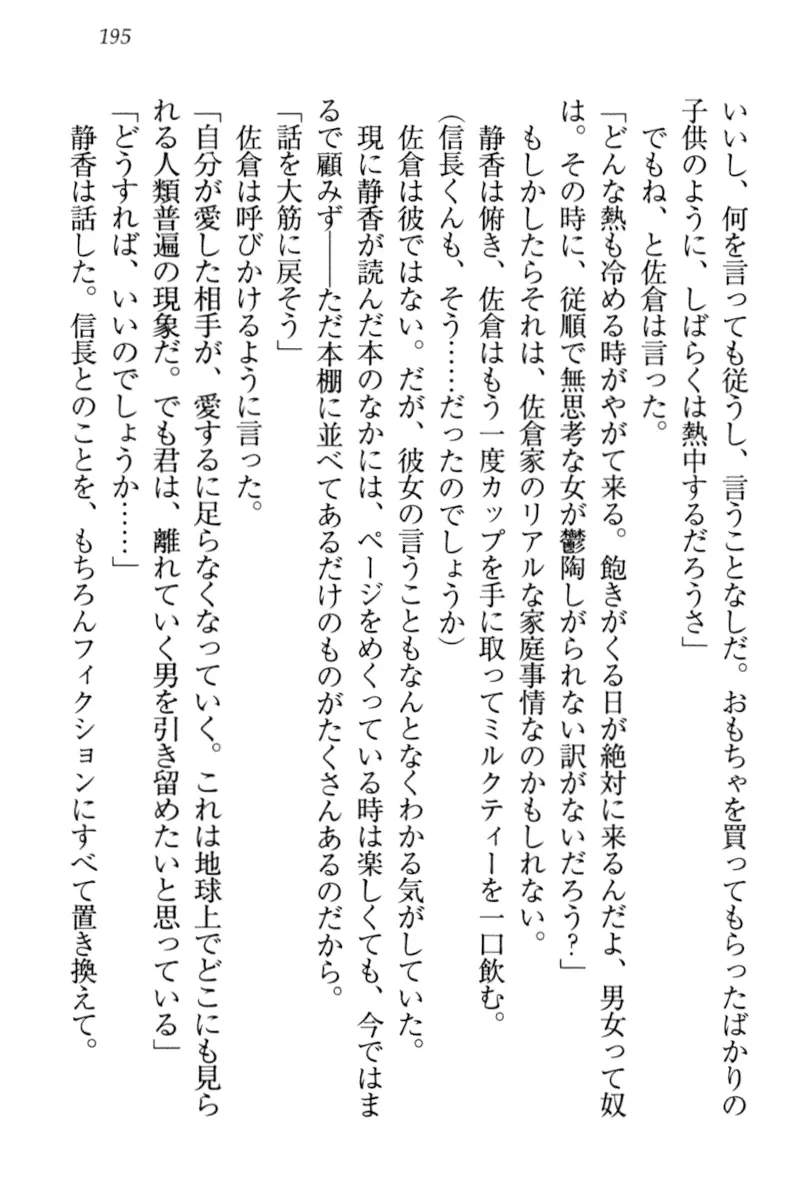 195
いいし、何を言っても従うし、言うことなしだ。おもちゃを買ってもらったばかりの
子供のように、しばらくは熱中するだろうさ」
　でもね、と佐倉は言った。
「どんな熱も冷める時がやがて来る。飽きがくる日が絶対に来るんだよ、男女って奴
は。その時に、従順で無思考な女が鬱陶しがられない訳がないだろう？」
　もしかしたらそれは、佐倉家のリアルな家庭事情なのかもしれない。
　静香は俯き、佐倉はもう一度カップを手に取ってミルクティーを一口飲む。
（信長くんも、そう……だったのでしょうか）
　佐倉は彼ではない。だが、彼女の言うこともなんとなくわかる気がしていた。
　現に静香が読んだ本のなかには、ページをめくっている時は楽しくても、今ではま
るで顧みず――ただ本棚に並べてあるだけのものがたくさんあるのだから。
「話を大筋に戻そう」
　佐倉は呼びかけるように言った。
「自分が愛した相手が、愛するに足らなくなっていく。これは地球上でどこにも見ら
れる人類普遍の現象だ。でも君は、離れていく男を引き留めたいと思っている」
「どうすれば、いいのでしょうか……」
　静香は話した。信長とのことを、もちろんフィクションにすべて置き換えて。